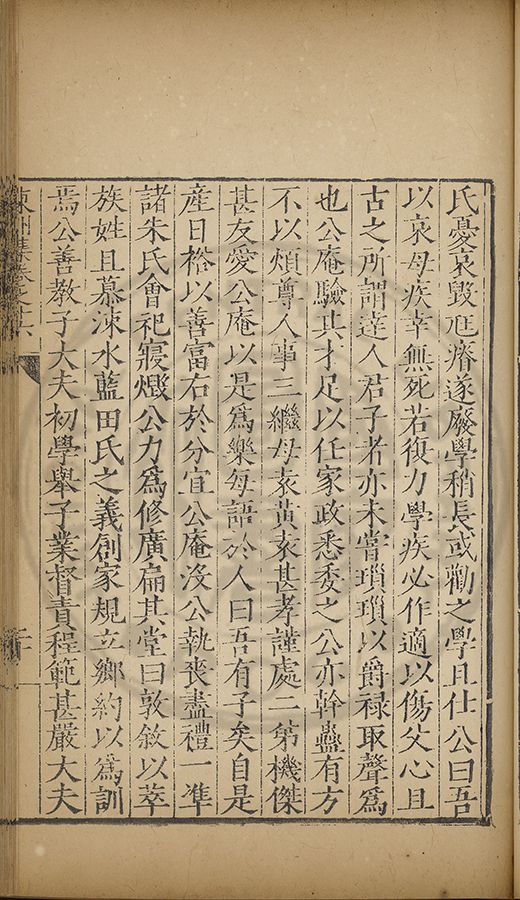 氏憂哀毀尫瘠遂廢學稍長或勸之學且仕公曰吾
以哀母疾幸無死若復力學疾必作適以傷父心且
古之所謂達人君子者亦未嘗瑣瑣以爵祿取聲爲
也公庵驗其才足以任家政悉委之公亦幹蠱有方
不以煩尊人事三繼母袁黃袁甚孝謹處二第機傑
甚友愛公庵以是爲樂每語於人曰吾有子矣自是
産日裕以善富右於分宜公庵沒公執喪盡禮一準
諸朱氏會祀寢燬公力爲修廣扁其堂曰敦敘以萃
族姓且慕涑水藍田氏之義創家規立鄉約以爲訓
焉公善教子大夫初學舉子業督責程範甚嚴大夫
集卷之十六